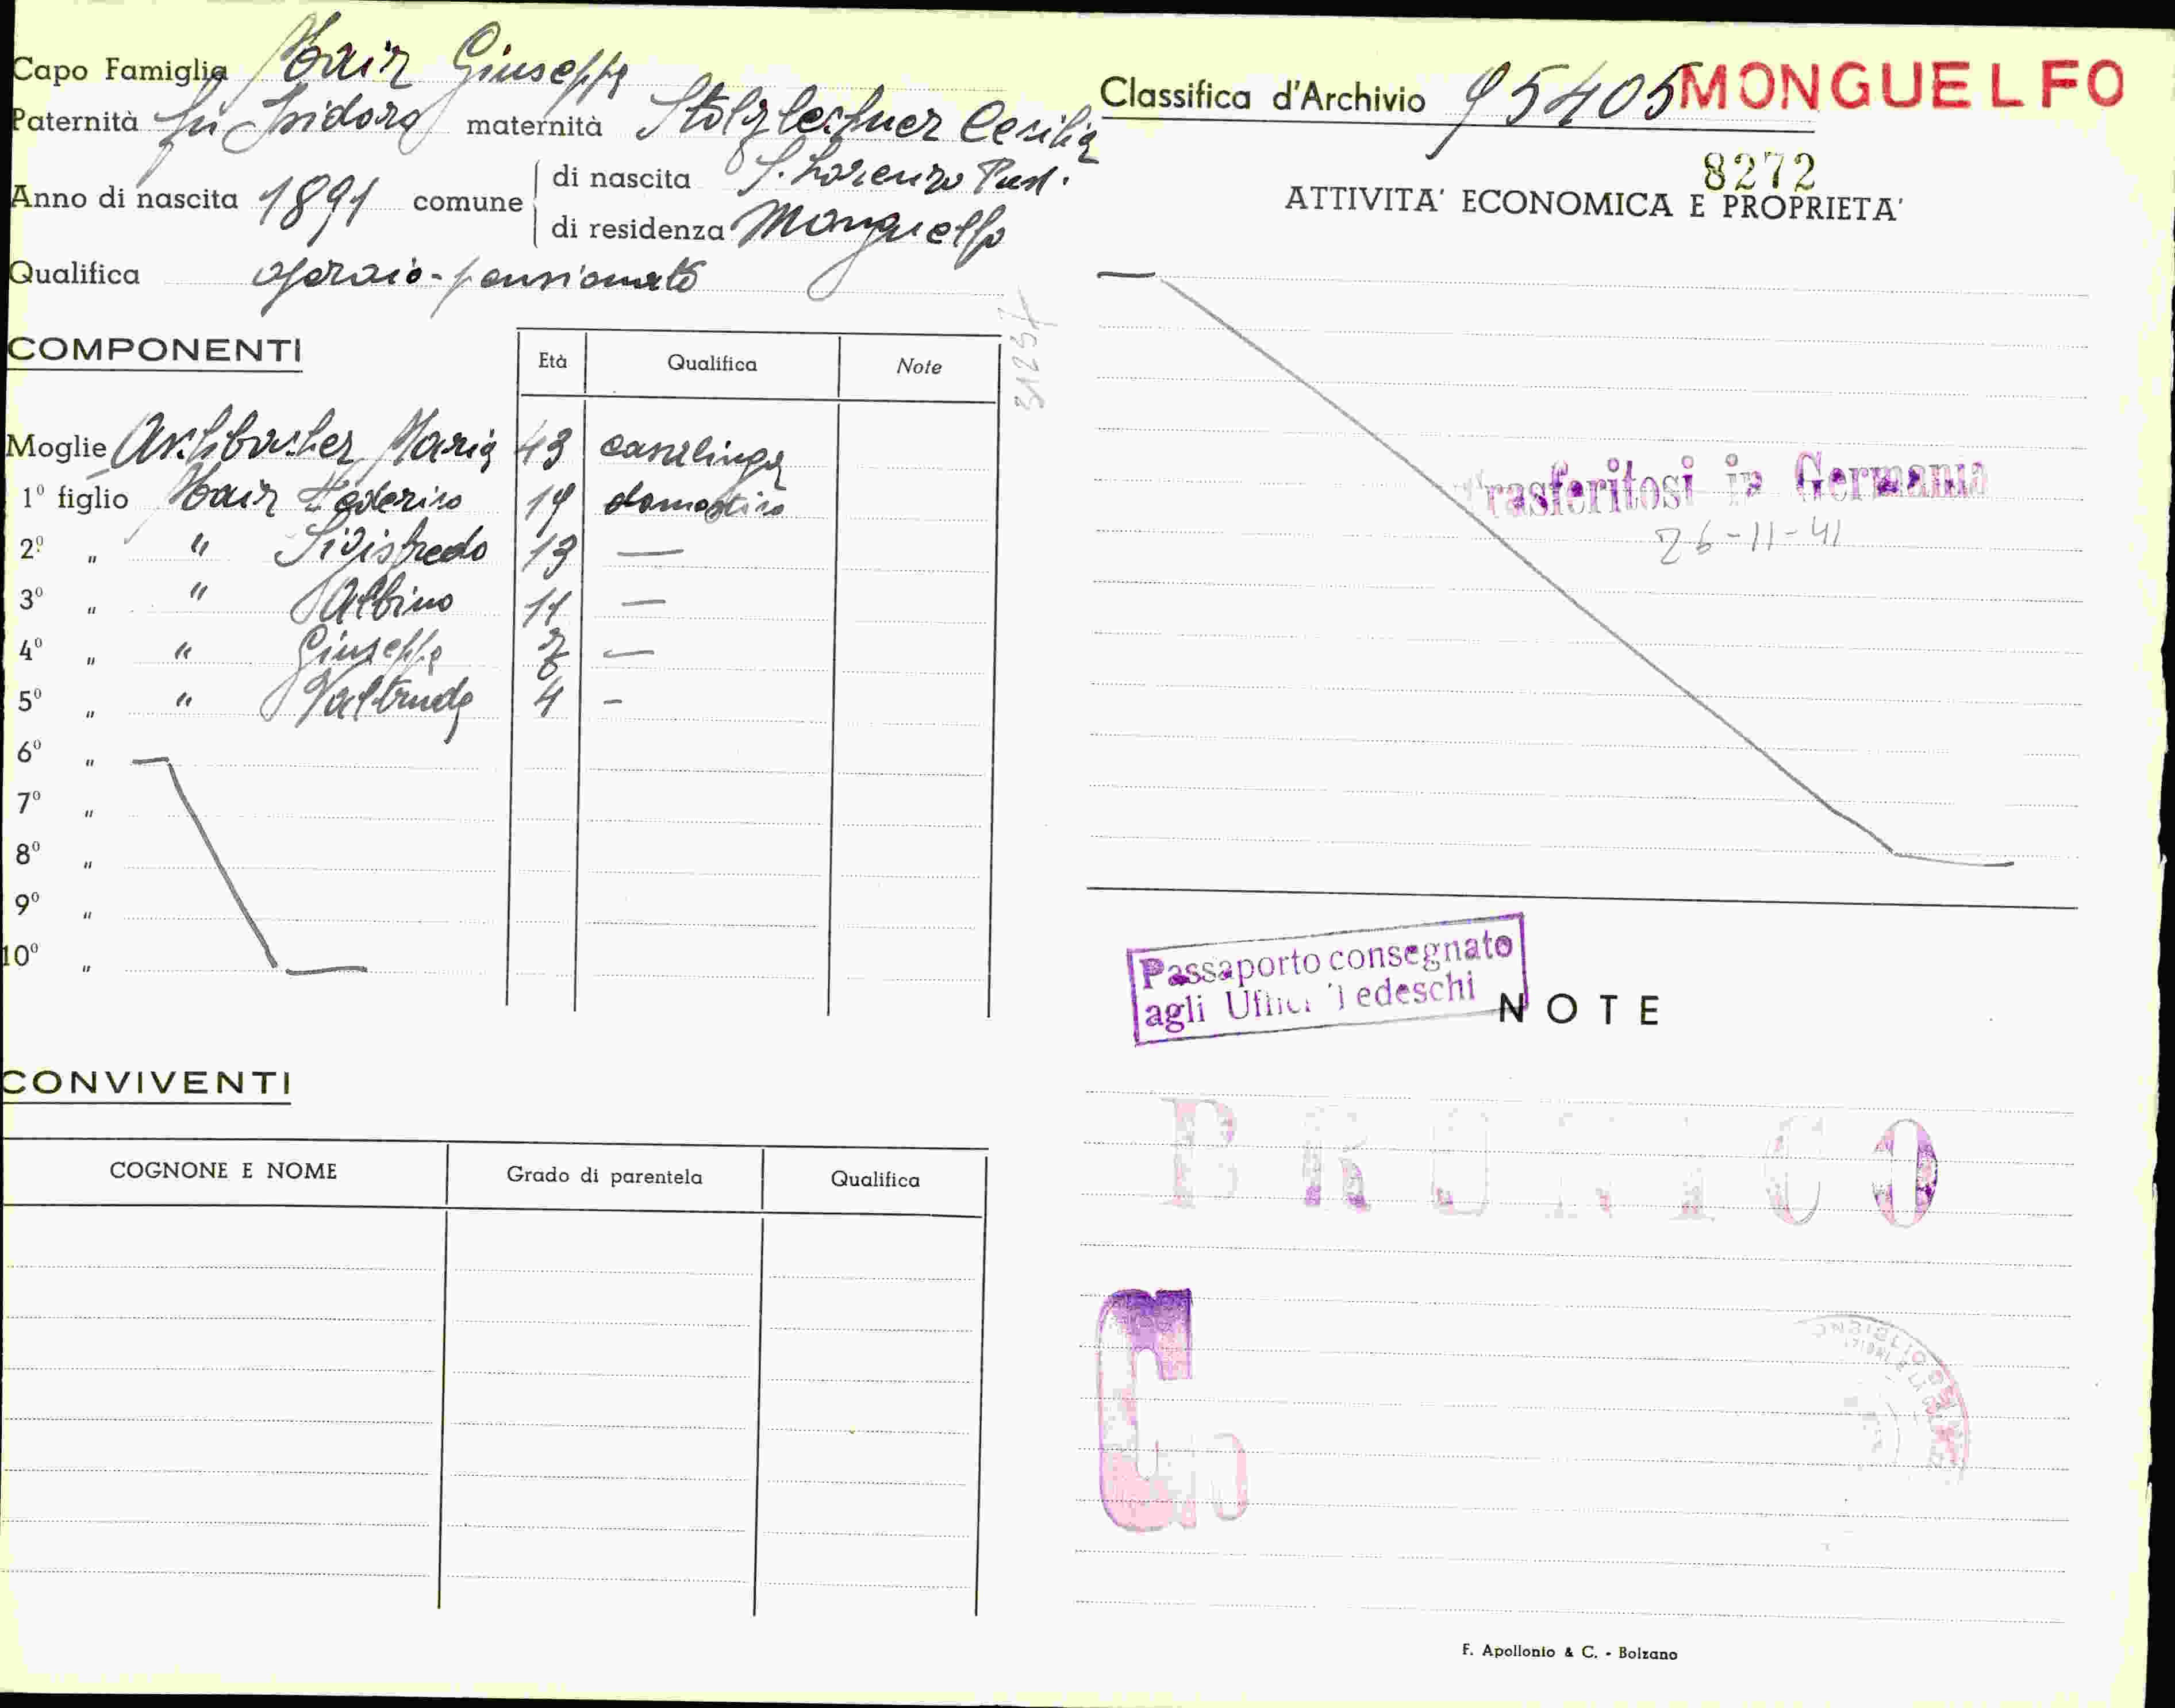 Capo Famiglia Mair Giuseppe
Paternità fu Isidoro maternità Stolzlechner Cecilia
Anno di nascita 1891 comune di nascita S. Lorenzo Pust.
di residenza Monguelfo
Qualifica operaio-pensionato
COMPONENTI
Età Qualifica Note
Moglie Aschbacher Maria 43 casalinga
1º figlio Mair Federico 14 domestico
2º " " Sigisfredo 13 —
3º " " Albino 11 —
4º " " Giuseppe 7 —
5º " " Valtrude 4 -
6º "
7º "
8º "
9º "
10º "
31237
CONVIVENTI
COGNONE E NOME Grado di parentela Qualifica
Classifica d'Archivio 95405 MONGUELFO
8272
ATTIVITA' ECONOMICA E PROPRIETA'
Trasferitosi in Germania
26-11-41
Passaporto consegnato
agli Uffici Tedeschi
NOTE
BRUNICO
C
F. Apollonio & C. - Bolzano